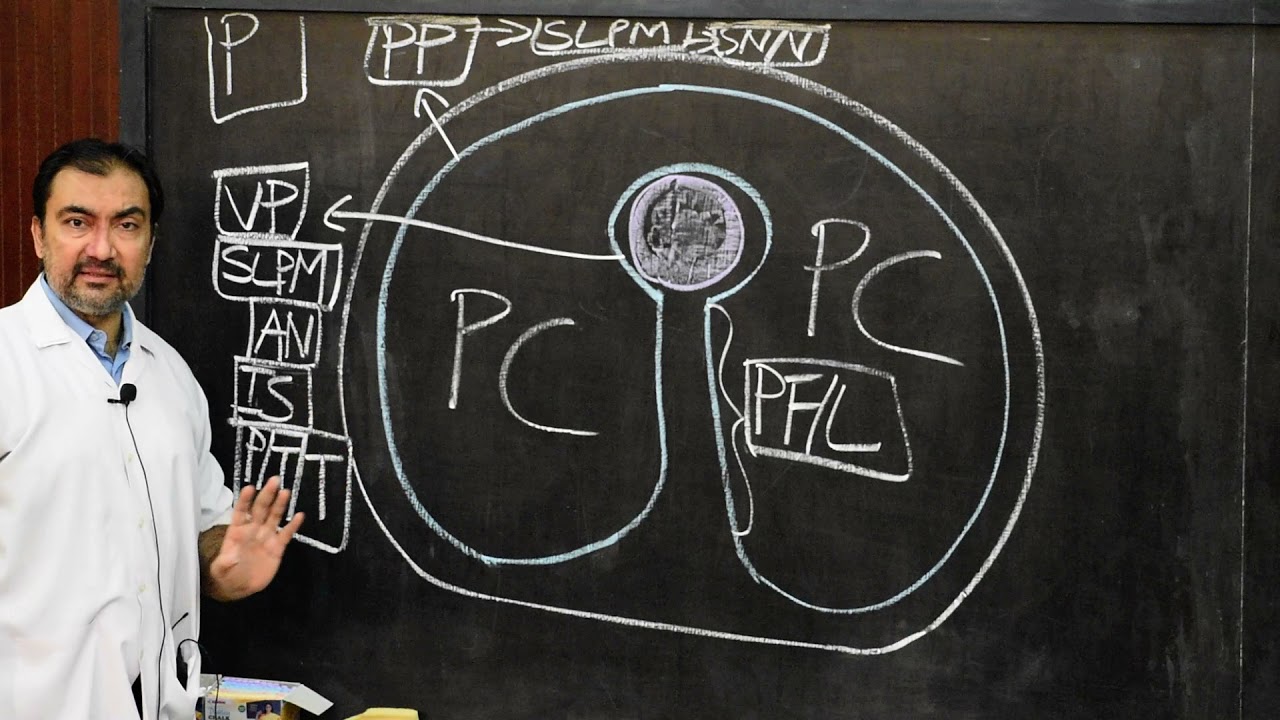 P
PP → SLPM → SN/N
VP
SLPM
AN
IS
P/T/T
PC
PC
PF/L
CHALK